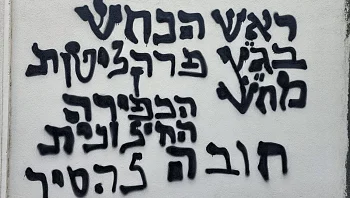 ראש הנחש
בג"ץ פרקליטות
מח"ש
הכפירה
חובה להסיר